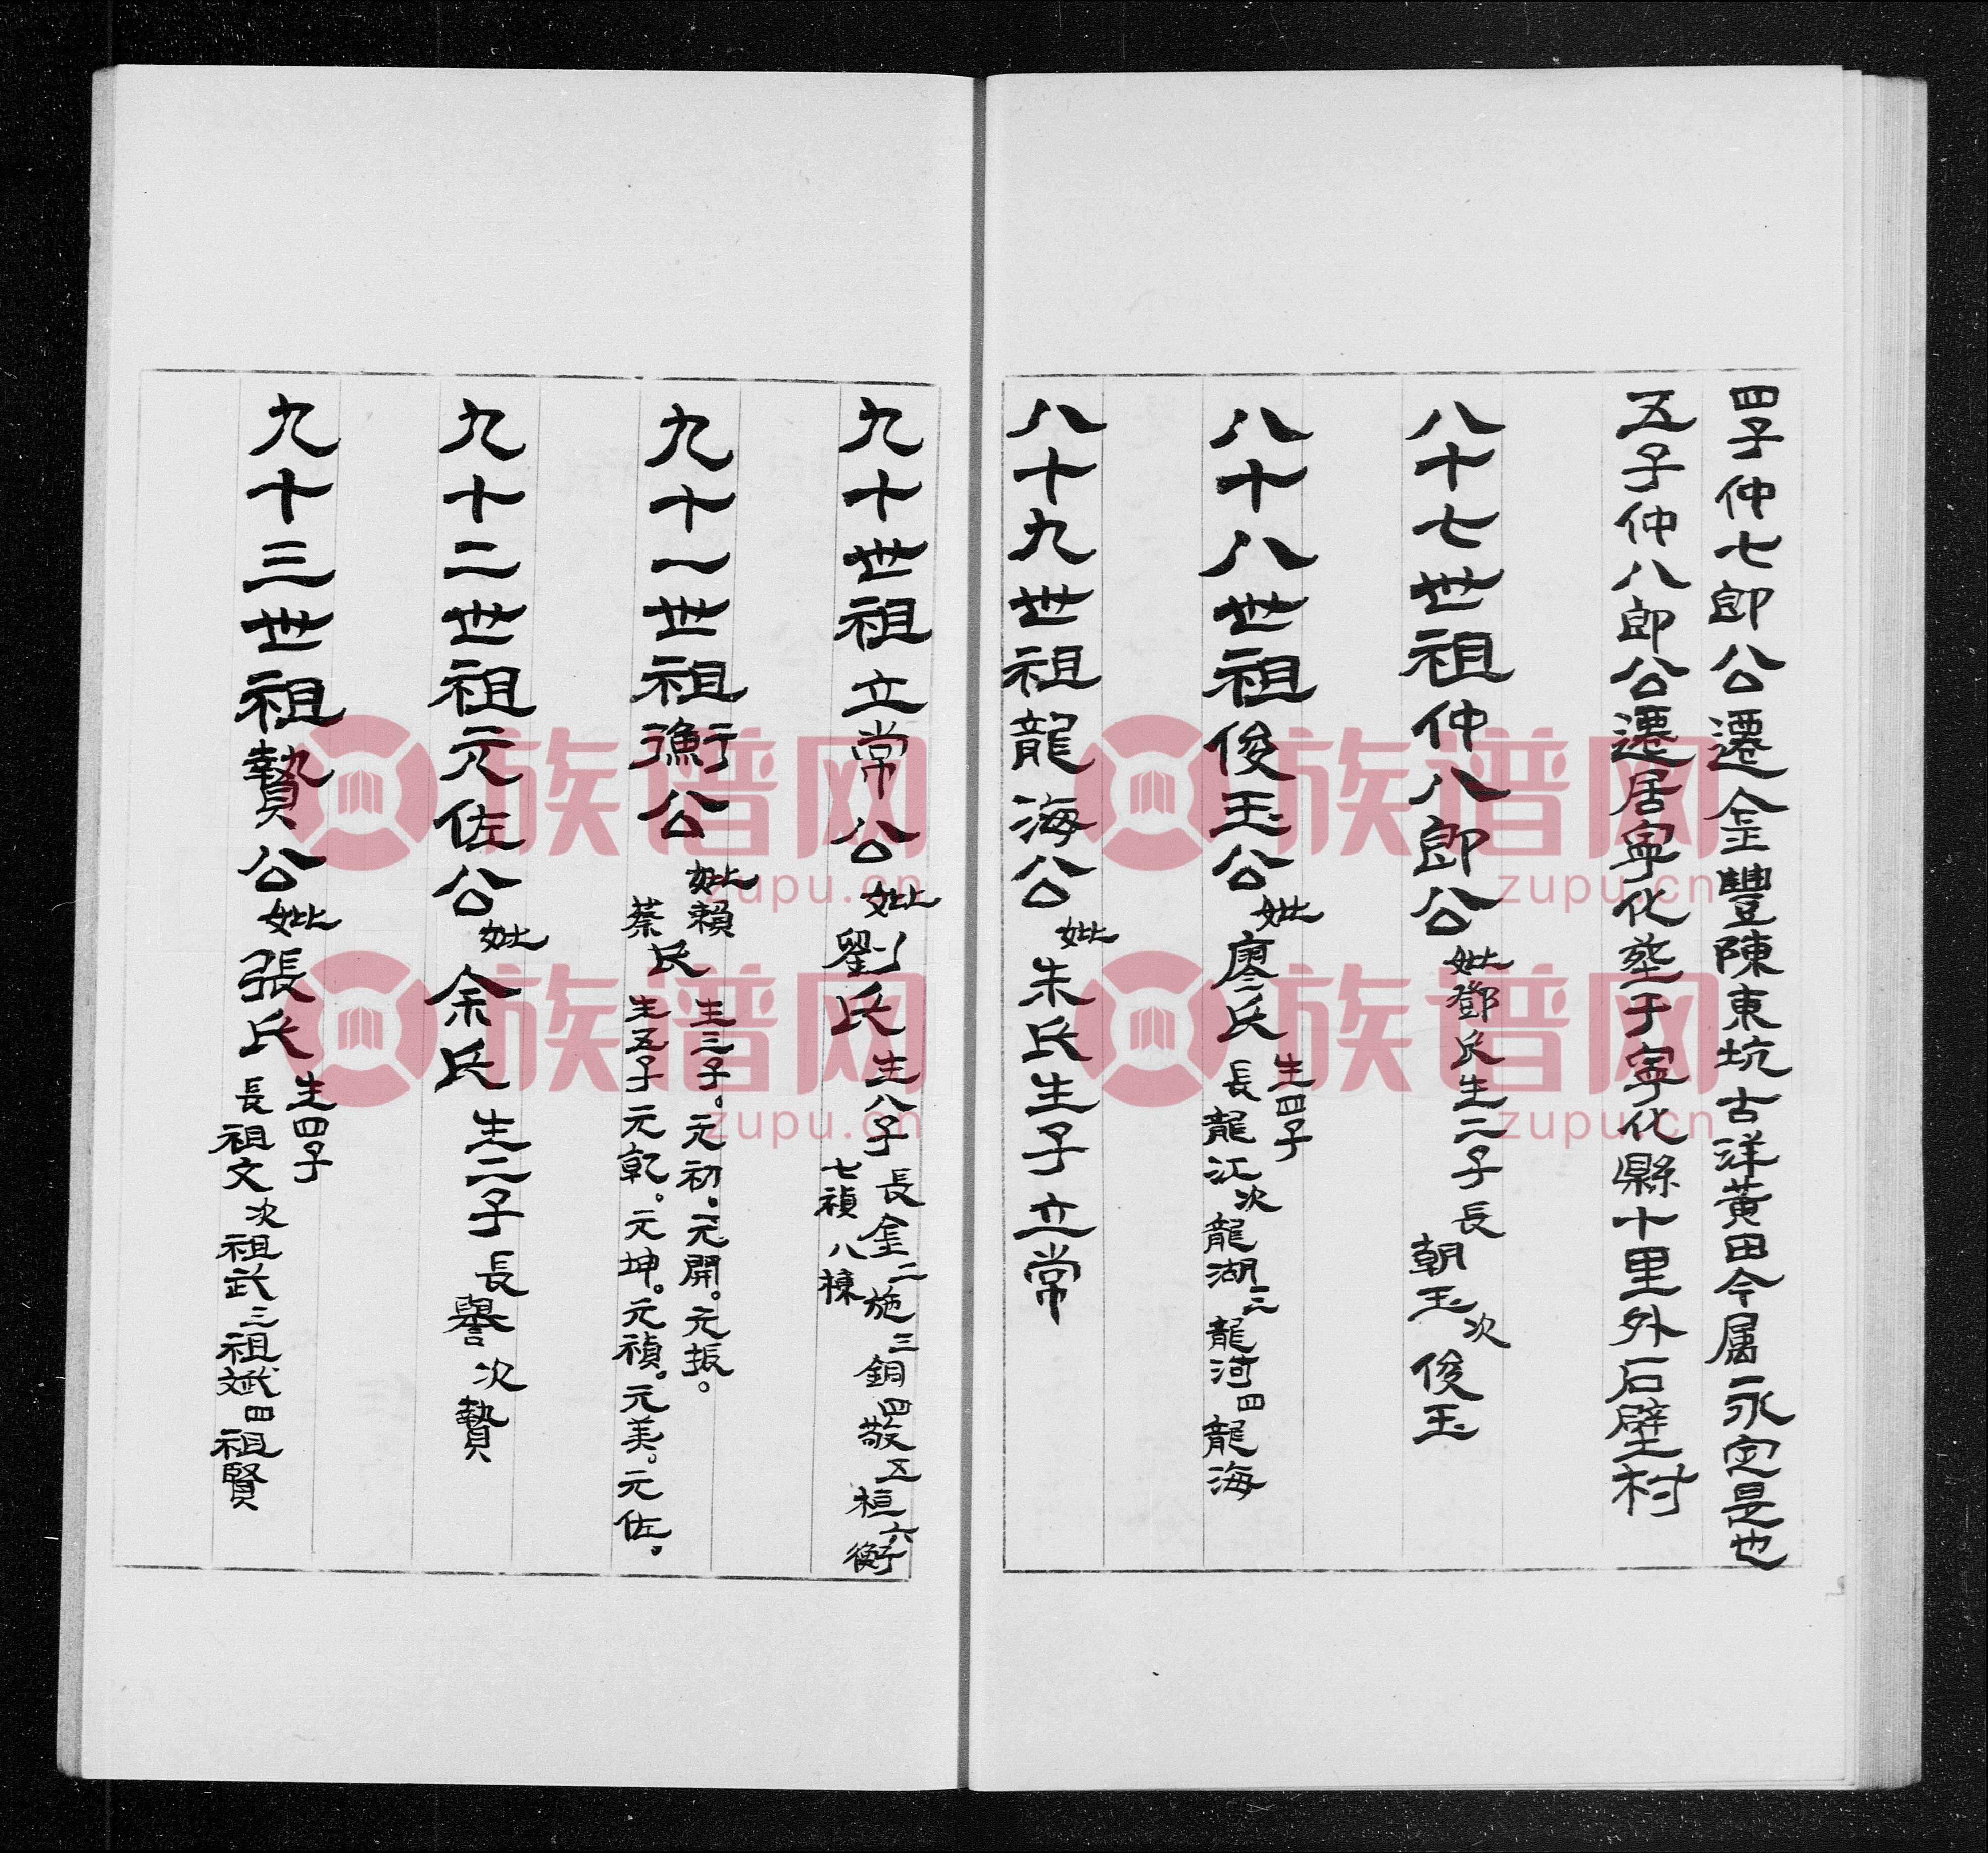 四子仲七郎公遷金豐陳東坑古洋黃田今属永定是也
五子仲八郎公遷居寧化塟于寧化縣十里外石壁村
八十七世祖仲八郎公妣鄧氏生二子長朝玉次俊玉
八十八世祖俊玉公妣廖氏生四子長龍江次龍湖三龍河四龍海
八十九世祖龍海公妣朱氏生子立常
九十世祖立常公妣劉氏生八子長金二施三銅四敬五桓六衡七禎八棟
九十一世祖衡公妣賴蔡氏
生三子。元初。元開。元振。
生五子元乾。元坤。元禎。元美。元佐。
九十二世祖元佐公妣余氏生二子長譽次贄
九十三世祖贄公妣張氏生四子長祖文次祖武三祖斌四祖賢
族谱网
zupu.cn
族谱网
zupu.cn
族谱网
zupu.cn
族谱网
zupu.cn